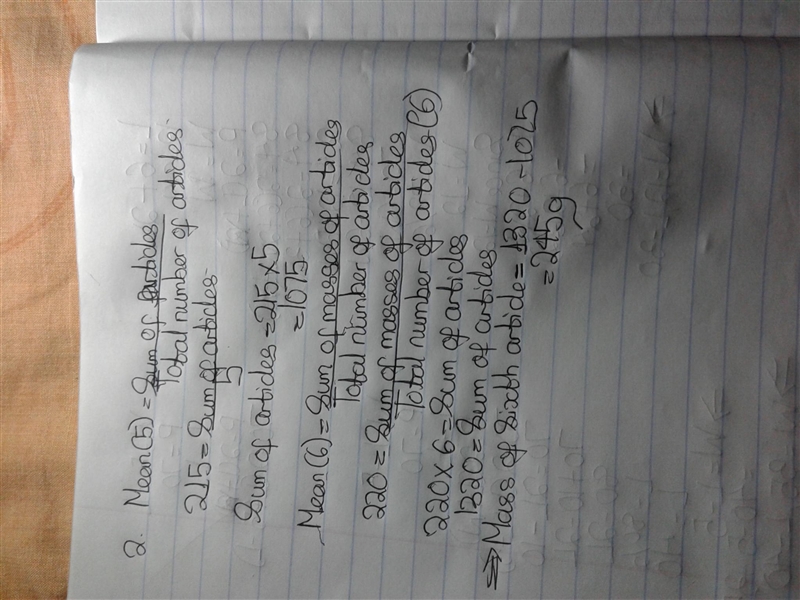 2. Mean(5) = Sum of articles
Total number of articles.
215 = Sum of articles
5
Sum of articles = 215 x 5
= 1075
Mean (6) = Sum of masses of articles
Total number of articles
220 = Sum of masses of articles
Total number of articles (6)
220 x 6 = Sum of articles
1320 = Sum of articles
⇒ Mass of Sixth article = 1320 - 1075
= 245g